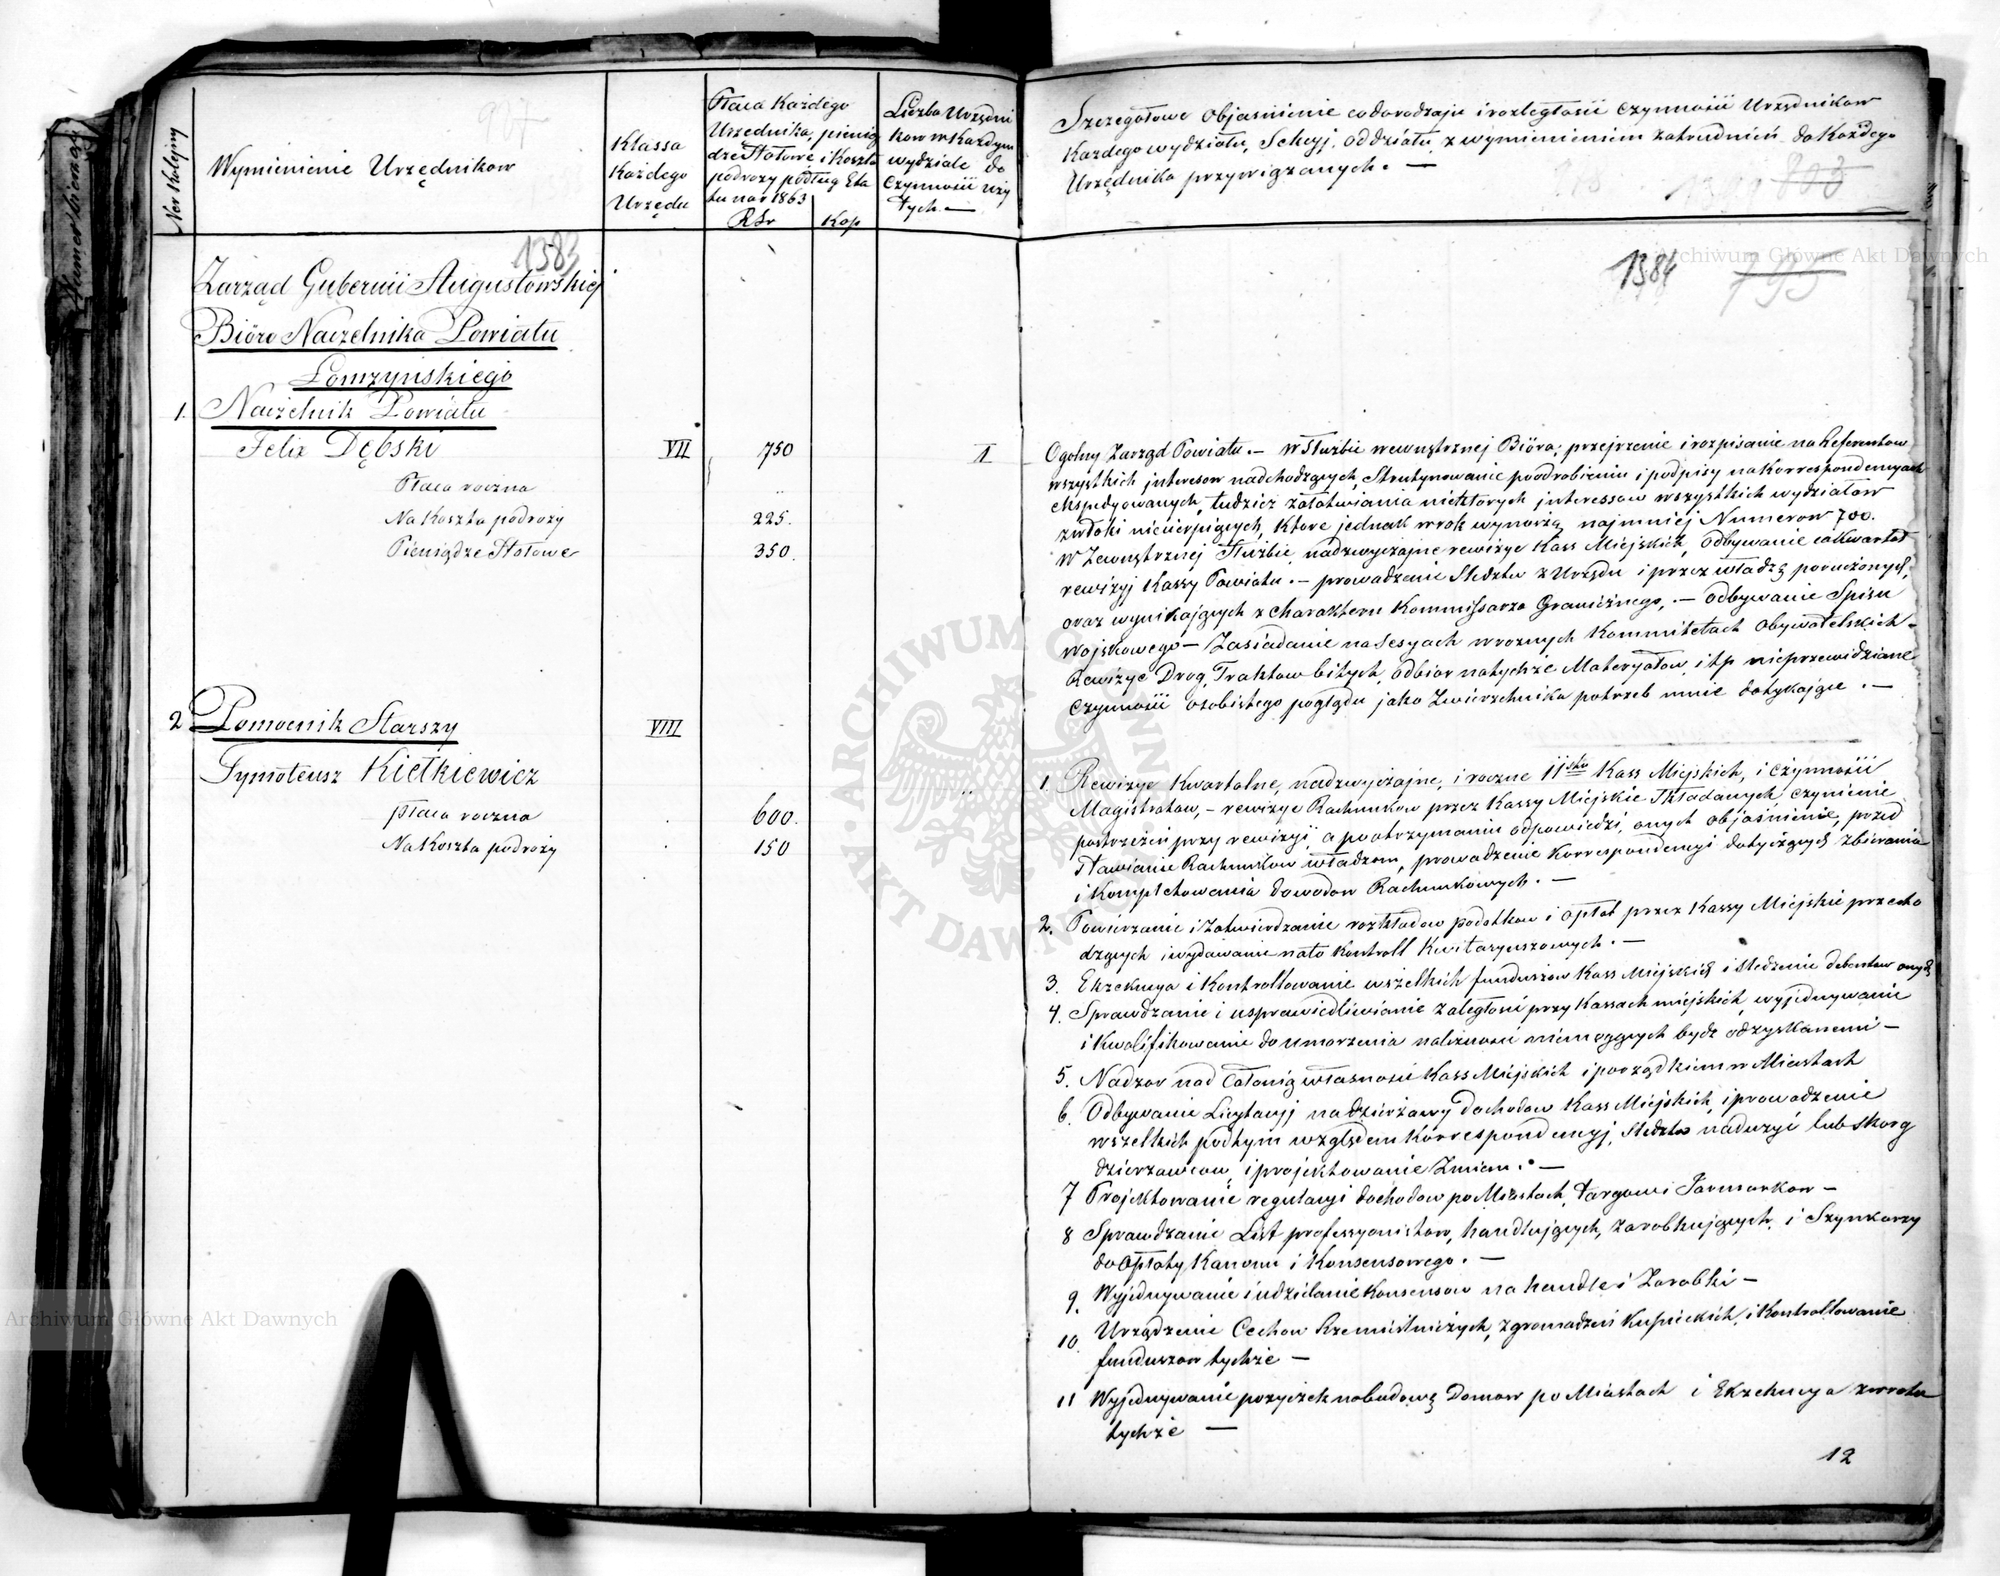 Ner Kolejny
Wymienienie Urzędnikow
Klassa
Każdego
Urzędu
Płaca Każdego
Urzędnika, pienią
dze Stołowe i Koszta
podroży podług Eta
tu na r 1863
RSr
Kop
Liczba Urzędni
kow w Każdym
wydziale do
Czynności uży
tych. —
Szczegołowe Objaśnienie co do rodzaju i rozległości Czynności Urzędnikow
Każdego wydziału, Sekcyi, oddziału, z wymienieniem zatrudnień do Każdego
Urzędnika przywiązanych. —
803
1383
1384
795
Zarząd Gubernii Augustowskiej
Bióro Naczelnika Powiatu
Łomzynskiego
1. Naczelnik Powiatu
Felix Dębski VII 750 1
Płaca roczna
Na Koszta podroży 225.
Pieniądze Stołowe 350.
Ogolny Zarząd Powiatu. — W Służbie wewnętrznej Bióra; przejrzenie i rozpisanie na Referentow
wszystkich interesow nadchodzących, Skrutynowanie po odrobieniu i podpisy na Korrespondencyach
ekspedyowanych, tudzież załatwiania niektórych interessow wszystkich wydziałow
zwłoki niecierpiących, które jednak w rok wynoszą najmniej Numerow 700.
W Zewnętrznej Służbie, nadzwyczajne rewizye Kass Miejskich, Odbywanie co kwartał
rewizyj Kassy Powiatu. — prowadzenie Sledztw z Urzędu i przez władzę poruczonych,
oraz wynikających z charakteru Kommissarza Granicznego, — Odbywanie Spisu
Wojskowego — Zasiadanie na Sesyach w roznych Kommitetach Obywatelskich —
Rewizye Drog, Traktow bitych, Odbior na tychże Materyałow, itp nieprzewidziane
Czynności osobistego poglądu jako Zwierzchnika potrzeb mnie dotykające. —
2 Pomocnik Starszy VIII
Tymoteusz Kiełkiewicz „
płaca roczna 600.
Na Koszta podroży 150
1. Rewizye Kwartalne, nadzwyczajne, i roczne 11stu Kass Miejskich, i czynności
Magistratow, — rewizye Rachunkow przez Kassy Miejskie Składanych, czynienie
postrzeżeń przy rewizyi, a po otrzymaniu odpowiedzi, onych objaśnienie, przed
stawianie Rachunkow władzom, prowadzenie Korrespondencyi dotyczących zbierania
i Kompletowania dowodow Rachunkowych. —
2. Powierzanie i Zatwierdzanie rozkładow podatkow i Opłat przez Kassy Miejskie przecho
dzących i wydawanie na to Kontroll Kwitaryuszowych. —
3. Ekzekucya i Kontrollowanie wszelkich funduszow Kass Miejskich i śledzenie debentow onych
4. Sprawdzanie i usprawiedliwianie zaległości przy Kassach miejskich, wyjednywanie
i Kwalifikowanie do umorzenia należności niemogących bydź odzyskanemi —
5. Nadzor nad Całością własności Kass Miejskich i porządkiem w Miastach
6. Odbywanie Licytacyj na dzierżawy dochodow Kass Miejskich, i prowadzenie
wszelkich pod tym względem Korrespondencyj, Sledztw nadużyć lub skarg
dzierżawcow, i projektowanie Zmian. —
7 Projektowanie regulacyi dochodow po Miastach, Targow i Jarmarkow —
8 Sprawdzanie List professyonistow, handlujących, zarobkujących, i Szynkarzy
do Opłaty Kanonu i Konsensowego. —
9. Wyjednywanie i udzielanie Konsensow na handle i Zarobki —
10. Urządzenie Cechow Rzemieślniczych, zgromadzeń Kupieckich, i Kontrollowanie
funduszow tychże —
11 Wyjednywanie pożyczek na budowę Domow po Miastach i Ekzekucya zwrotu
tychże —
12
ARCHIWUM GŁÓWNE AKT DAWNYCH
Archiwum Główne Akt Dawnych
Archiwum Główne Akt Dawnych